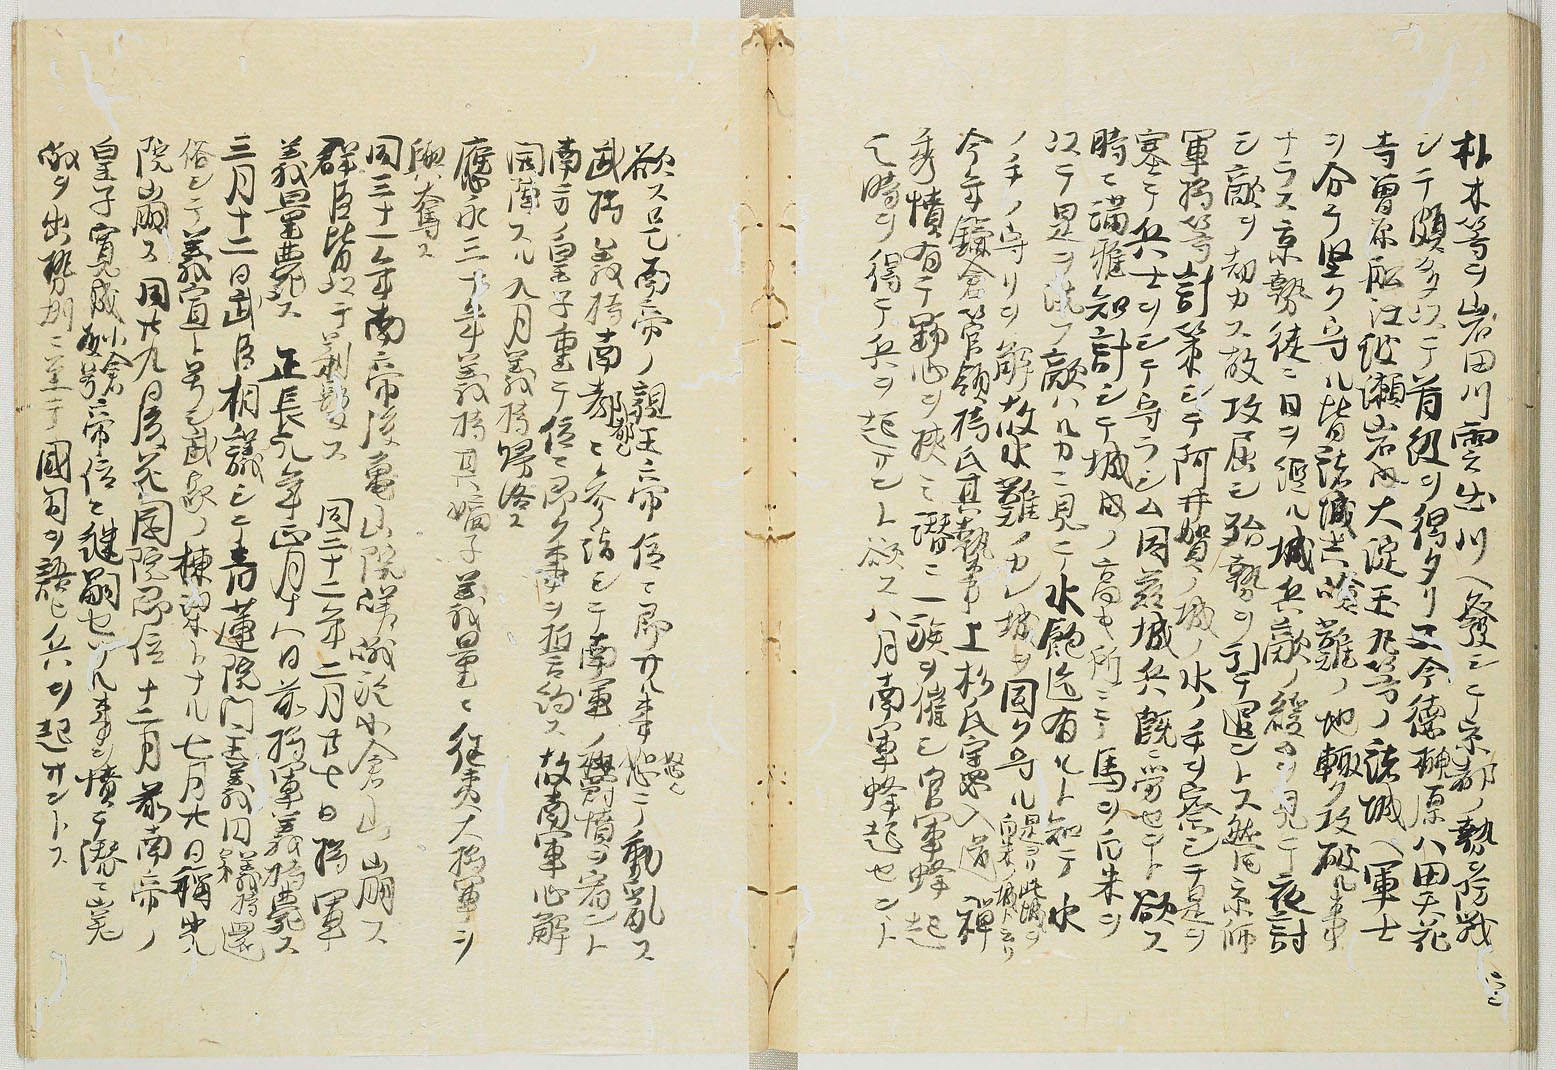 朴木等ヲ岩田川雲出川ヘ發シテ京都ノ勢ヲ防戦
シテ頗多クシテ首級ヲ得タリ又今徳榊原八田大花
寺曽原船江波瀬岩内大淀玉丸等ノ諸城ヘ軍士
ヲ分テ堅ク守ル皆諸城共嶮難ノ地輙ク攻破ル事
ナラス京勢徒ニ日ヲ經ル城兵敵ノ緩キヲ見テ夜討
シ敵ヲ劫カス故攻屈シ殆勢ヲ引テ退ントス然処京師
軍将等計策シテ阿井賀ノ城ノ水ノ手ヲ察シテ是ヲ
塞テ兵士ヲシテ守ラシム因茲城兵既ニ労セント欲ス
時ニ満雅知計シテ城内ノ高キ所ニテ馬ヲ白米ヲ
以テ是ヲ洗フ敵ハルカニ見テ水飽迄有ルト知テ水
ノ手ノ守リヲ解故水難ノカレ城ヲ固ク守ル是ヨリ此城ヲ白米ノ城ト云リ
今年鎌倉管領持氏其執事上杉氏憲入道禅
秀憤有テ野心ヲ挟ミ潜ニ一族ヲ催シ官軍蜂起
シ時ヲ得テ兵ヲ起サント欲ス八月南軍蜂起セント
欲ス已ニ南帝ノ親王帝位ニ即サル事怒テ動乱ス
武将義持南都ニ参詣シテ南軍ノ欝憤ヲ宥ント
南方ノ皇子重テ位ニ即ク事ヲ相言約ス故南軍心解
同薄スル九月義持帰洛ス
應永三十年義持其嫡子義量ニ征夷大将軍ヲ
與奪ス
同三十一年南帝後亀山院嵯峨於小倉山崩ス
群臣皆以テ剃髪ス 同三十二年二月廿七日将軍
義量薨ス 正長元年正月十八日前将軍義持薨ス
三月十二日武臣相議シテ青蓮院門主義円義持弟還
俗シテ義宣ト号シ武家ノ棟梁トナル七月廿日稱光
院崩ス同廿九日後花園院即位十二月前南帝ノ
皇子寛成小倉殿号帝位ニ継嗣セサル事ヲ憤テ潜ニ嵯峨
ヲ出勢州ニ至テ國司ヲ語ヒ兵ヲ起サントス